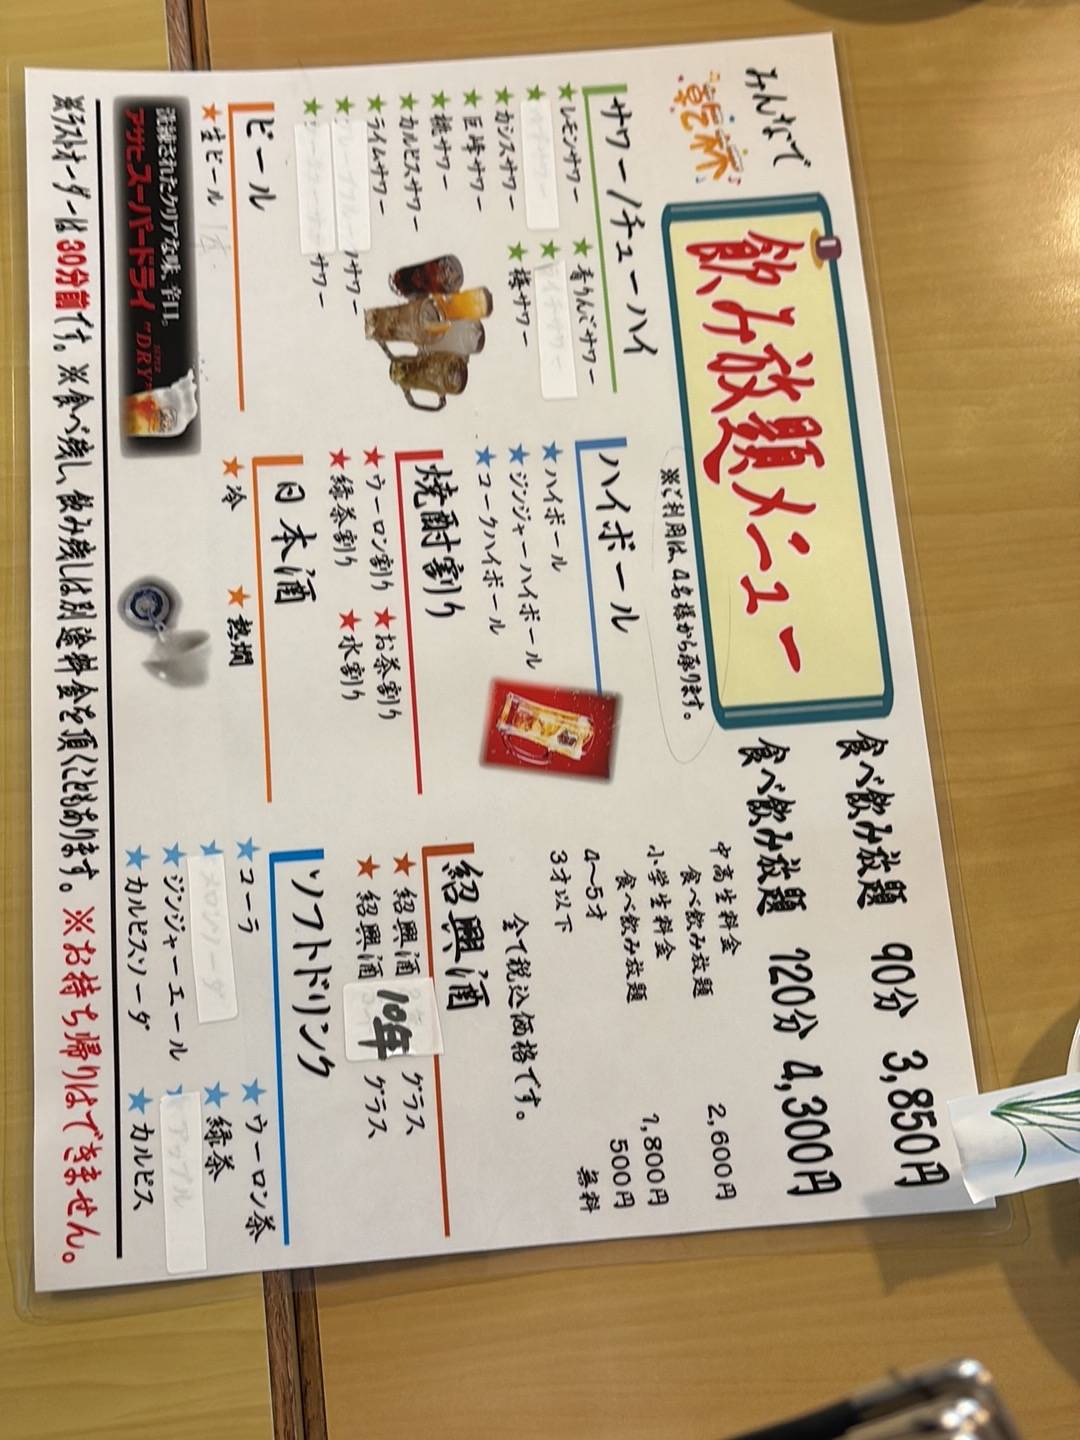 みんなで
乾杯
飲み放題メニュー
※ご利用は、4名様から承ります。
食べ飲み放題 90分 3,850円
食べ飲み放題 120分 4,300円
中高生料金
食べ飲み放題 2,600円
小学生料金
食べ飲み放題 1,800円
4〜5才 500円
3才以下 無料
全て税込価格です。
サワー/チューハイ
★レモンサワー ★青りんごサワー
★ ★ライチサワー
★カシスサワー ★梅サワー
★巨峰サワー
★桃サワー
★カルピスサワー
★ライムサワー
★グレープフルーツサワー
★サワー
ビール
★生ビール
洗練されたクリアな味、辛口。
アサヒスーパードライ "DRY"
ハイボール
★ハイボール
★ジンジャーハイボール
★コークハイボール
焼酎割り
★ウーロン割り ★お茶割り
★緑茶割り ★水割り
日本酒
★冷 ★熱燗
紹興酒
★紹興酒 10年 グラス
★紹興酒 グラス
ソフトドリンク
★コーラ ★ウーロン茶
★メロンソーダ ★緑茶
★ジンジャーエール ★アップル
★カルピスソーダ ★カルピス
※ラストオーダーは30分前です。※食べ残し、飲み残しは別途料金を頂くこともあります。※お持ち帰りはできません。